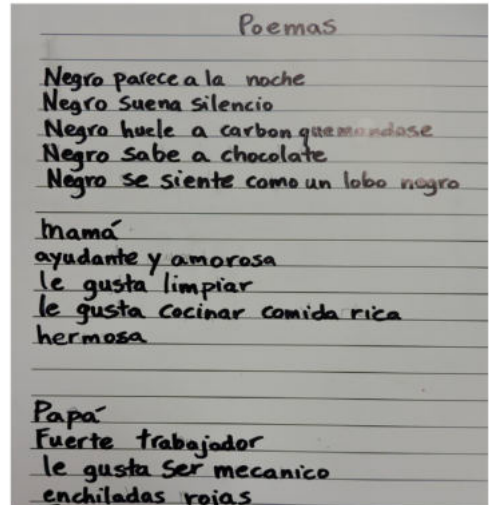 Poemas
Negro parece a la noche
Negro suena silencio
Negro huele a carbon quemandose
Negro sabe a chocolate
Negro se siente como un lobo negro
mamá
ayudante y amorosa
le gusta limpiar
le gusta cocinar comida rica
hermosa
Papá
Fuerte trabajador
le gusta ser mecanico
enchiladas rojas